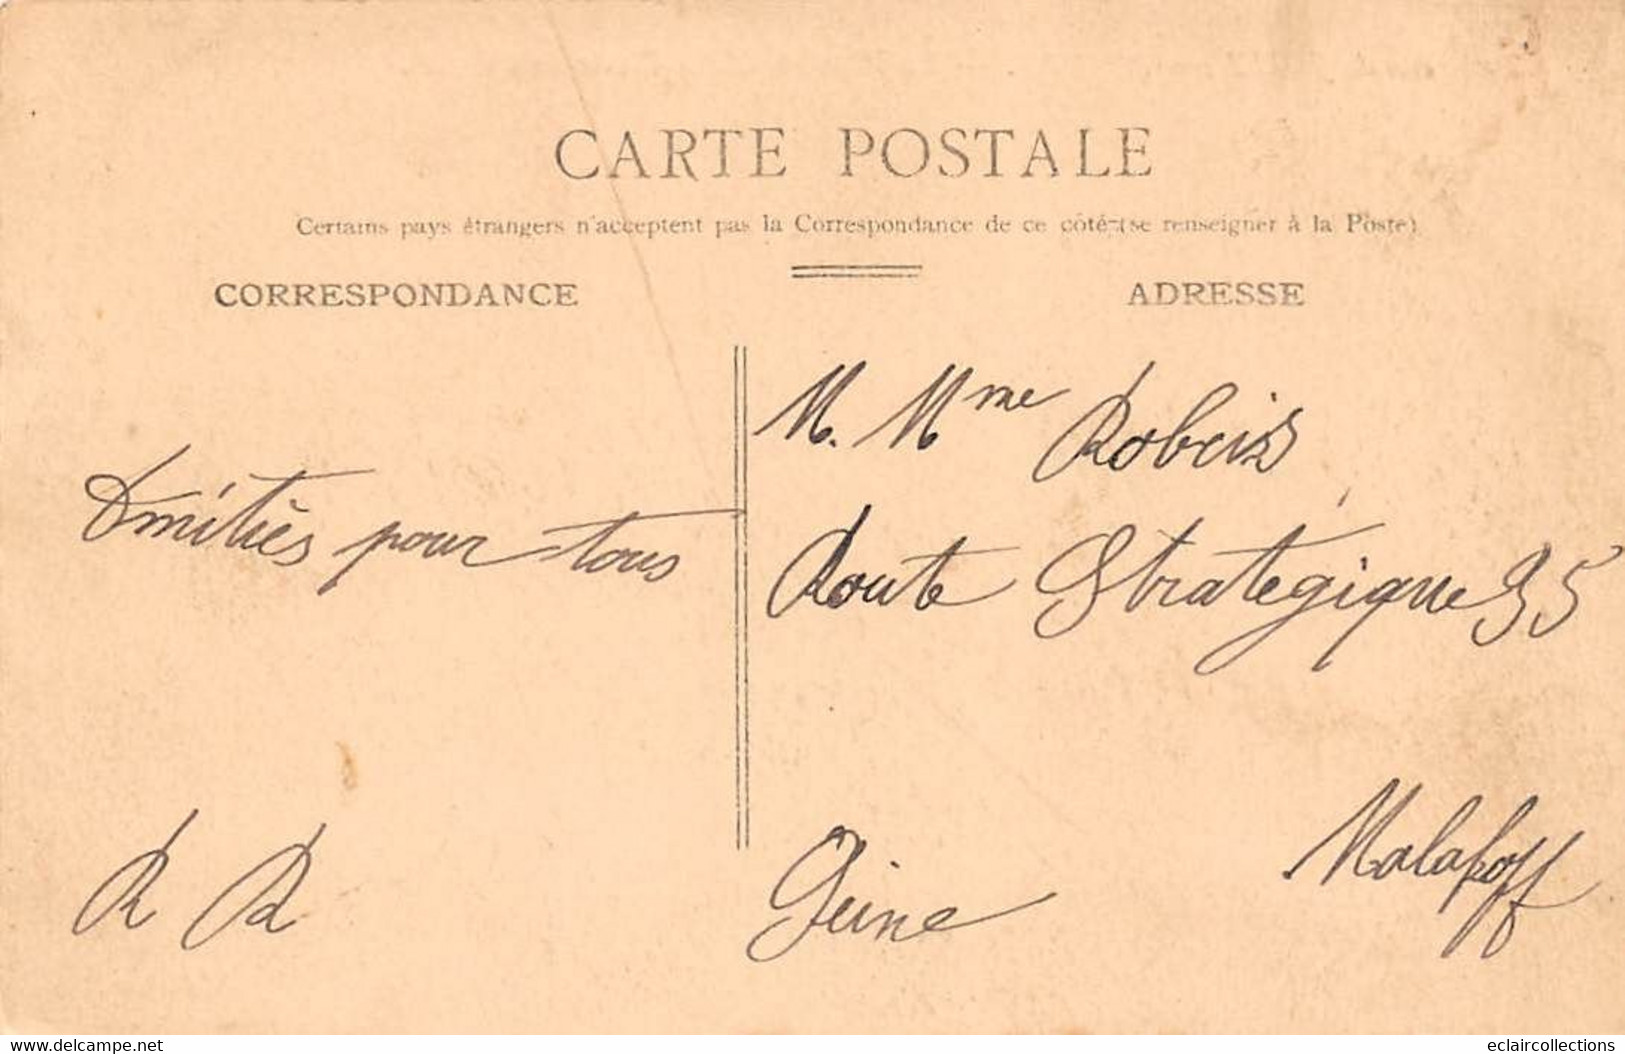 CARTE POSTALE
Certains pays étrangers n'acceptent pas la Correspondance de ce côté (se renseigner à la Poste)
CORRESPONDANCE
ADRESSE
Amitiès pour tous
R R
M. Mme
Route Stratégique 95
Malakoff
Seine
www.delcampe.net
eclaircollections